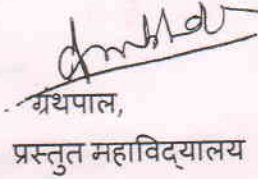 ग्रथपाल,
प्रस्तुत महाविद्यालय